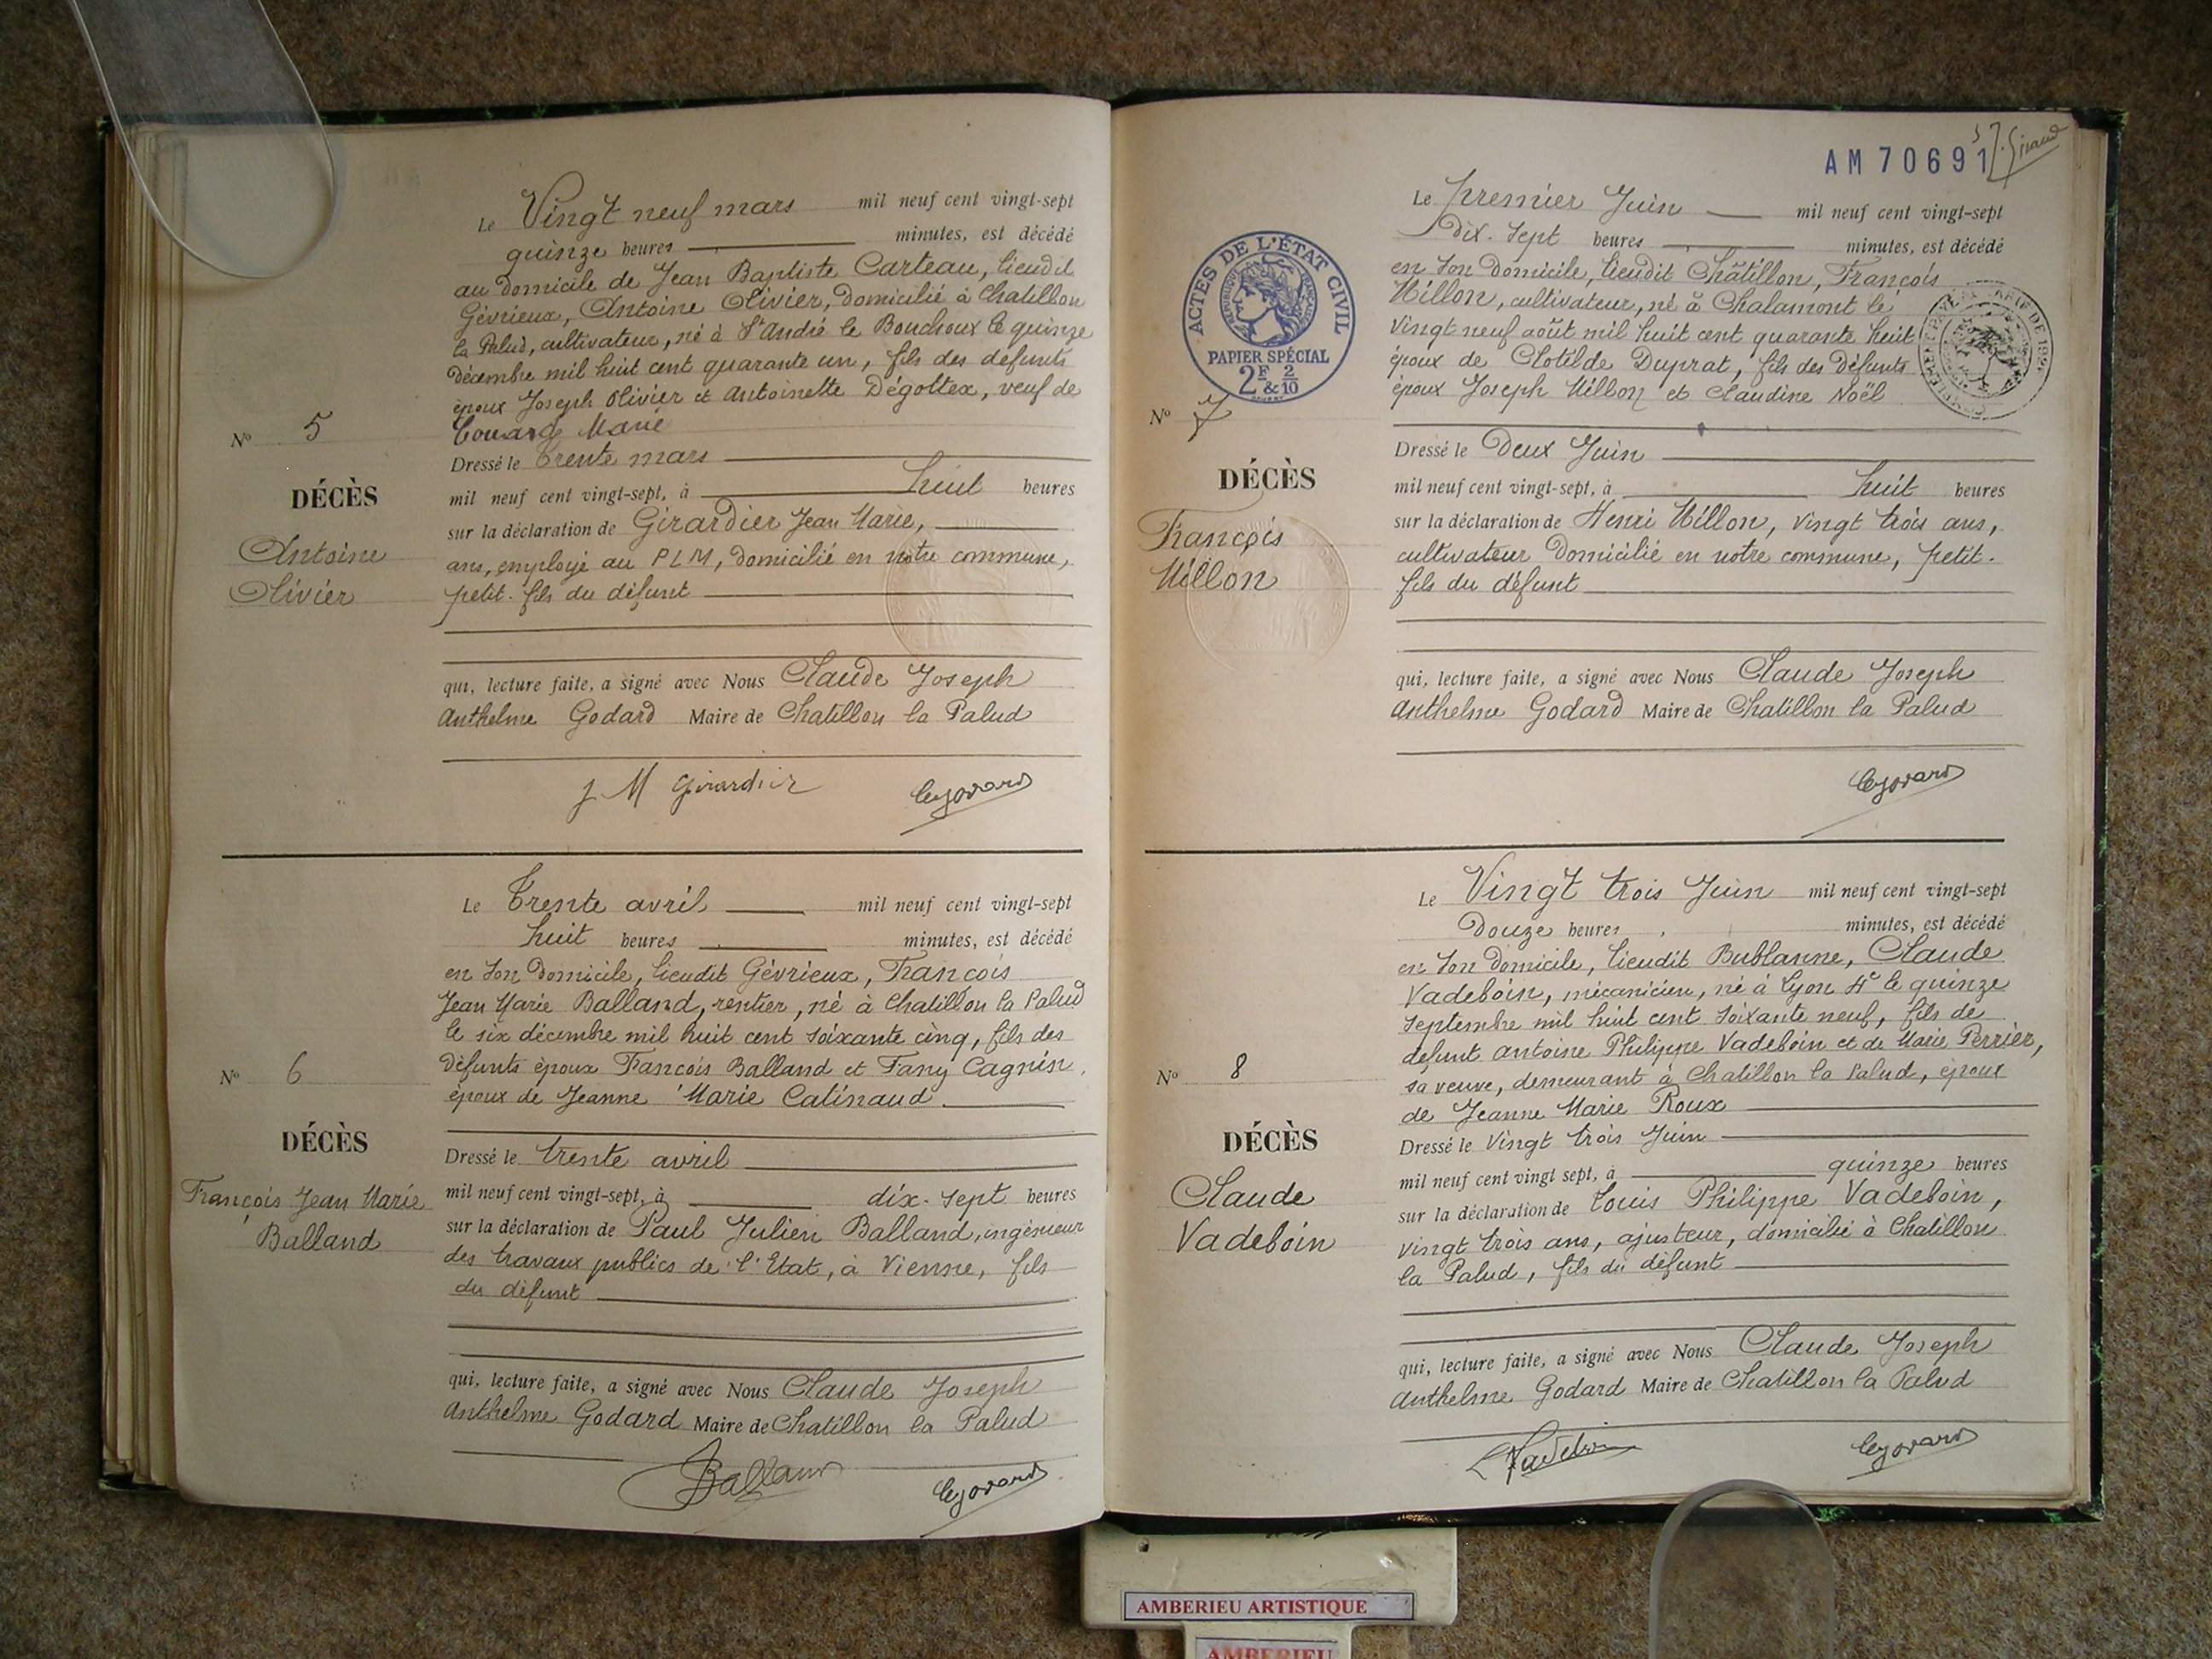 Le Vingt neuf mars mil neuf cent vingt-sept
quinze heures minutes, est décédé
au domicile de Jean Baptiste Carteau, lieudit
Gévrieux, Antoine Olivier, domicilié à Chatillon
la Palud, cultivateur, né à St André le Bouchoux le quinze
décembre mil huit cent quarante un, fils des défunts
époux Joseph Olivier et Antoinette Dégottex, veuf de
Marie
No 5
DÉCÈS
Antoine
Olivier
Dressé le trente mars
mil neuf cent vingt-sept, à huit heures
sur la déclaration de Girardier Jean Marie,
ans, employé au PLM, domicilié en notre commune,
petit-fils du défunt
qui, lecture faite, a signé avec Nous Claude Joseph
Anthelme Godard Maire de Chatillon la Palud
J M Girardier
Le Trente avril mil neuf cent vingt-sept
huit heures minutes, est décédé
en son domicile, lieudit Gévrieux, François
Jean Marie Balland, rentier, né à Chatillon la Palud
le six décembre mil huit cent soixante cinq, fils des
défunts époux François Balland et Fany Cagnin,
époux de Jeanne Marie Catinaud
No 6
DÉCÈS
François Jean Marie
Balland
Dressé le trente avril
mil neuf cent vingt-sept, à dix-sept heures
sur la déclaration de Paul Julien Balland, ingénieur
des travaux publics de l'Etat, à Vienne, fils
du défunt
qui, lecture faite, a signé avec Nous Claude Joseph
Anthelme Godard Maire de Chatillon la Palud
Balland
AM 70691
Giraud
ACTES DE L'ÉTAT CIVIL
PAPIER SPÉCIAL
2F 2/10
&
Le premier Juin mil neuf cent vingt-sept
Dix-sept heures minutes, est décédé
en son domicile, lieudit Châtillon, François
Millon, cultivateur, né à Chalamont le
vingt neuf août mil huit cent quarante huit
époux de Clotilde Duprat, fils des défunts
époux Joseph Millon et Claudine Noël
No 7
DÉCÈS
François
Millon
Dressé le Deux Juin
mil neuf cent vingt-sept, à huit heures
sur la déclaration de Henri Millon, vingt trois ans,
cultivateur domicilié en notre commune, petit-
fils du défunt
qui, lecture faite, a signé avec Nous Claude Joseph
Anthelme Godard Maire de Chatillon la Palud
Le Vingt trois Juin mil neuf cent vingt-sept
Douze heures minutes, est décédé
en son domicile, lieudit Bublanne, Claude
Vadeboin, mécanicien, né à Lyon 4e le quinze
septembre mil huit cent soixante neuf, fils de
défunt Antoine Philippe Vadeboin et de Marie Perrier,
sa veuve, demeurant à Chatillon la Palud, époux
de Jeanne Marie Roux
No 8
DÉCÈS
Claude
Vadeboin
Dressé le Vingt trois Juin
mil neuf cent vingt sept, à quinze heures
sur la déclaration de Louis Philippe Vadeboin,
vingt trois ans, ajusteur, domicilié à Chatillon
la Palud, fils du défunt
qui, lecture faite, a signé avec Nous Claude Joseph
Anthelme Godard Maire de Chatillon la Palud
L Vadeboin
AMBERIEU ARTISTIQUE
AMBERIEU